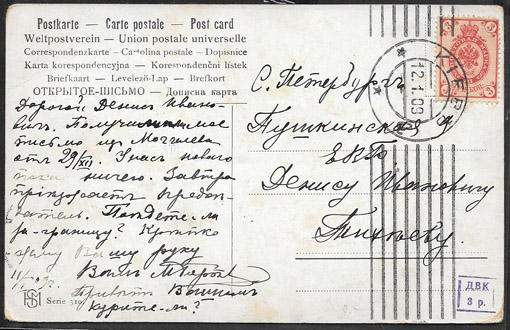 Postkarte – Carte postale – Post card
Weltpostverein – Union postale universelle
Correspondenzkarte – Cartolina postale – Dopisnice
Karta korespondencyjna – Korespondenční lístek
Briefkaart – Levelező-Lap – Brefkort
ОТКРЫТОЕ-ПИСЬМО – Дописна карта
Дорогой Денисъ Ивано-
вичъ. Получили мое
письмо из
отъ 29/XII. У насъ нового
пока ничего. Завтра
предсѣ-
датель. Поѣдете-ли
за-границу? Крѣпко
жму Вашу руку
Вашъ
Привѣтъ Вашимъ
Курите-ли?
С. Петербургъ
Пушкинская 4
ЕВБ
Денису Ивановичу
12.1.09
3
ДВК
3 р.
HSM
Serie 310